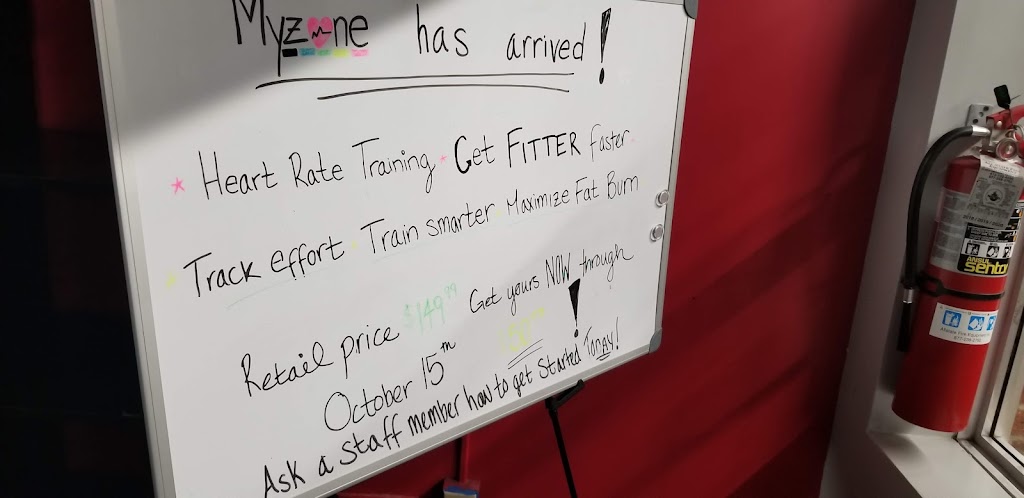 Myzone has arrived!
* Heart Rate Training · Get FITTER faster ·
· Track effort · Train smarter · Maximize Fat Burn
Retail price $149.99 Get yours NOW through
October 15th !
Ask a staff member how to get started TODAY!
ANSUL
Sentry